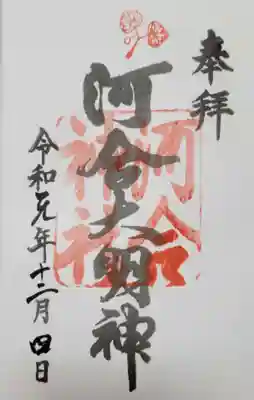 奉拝
河合大明神
河合神社
令和元年十二月四日